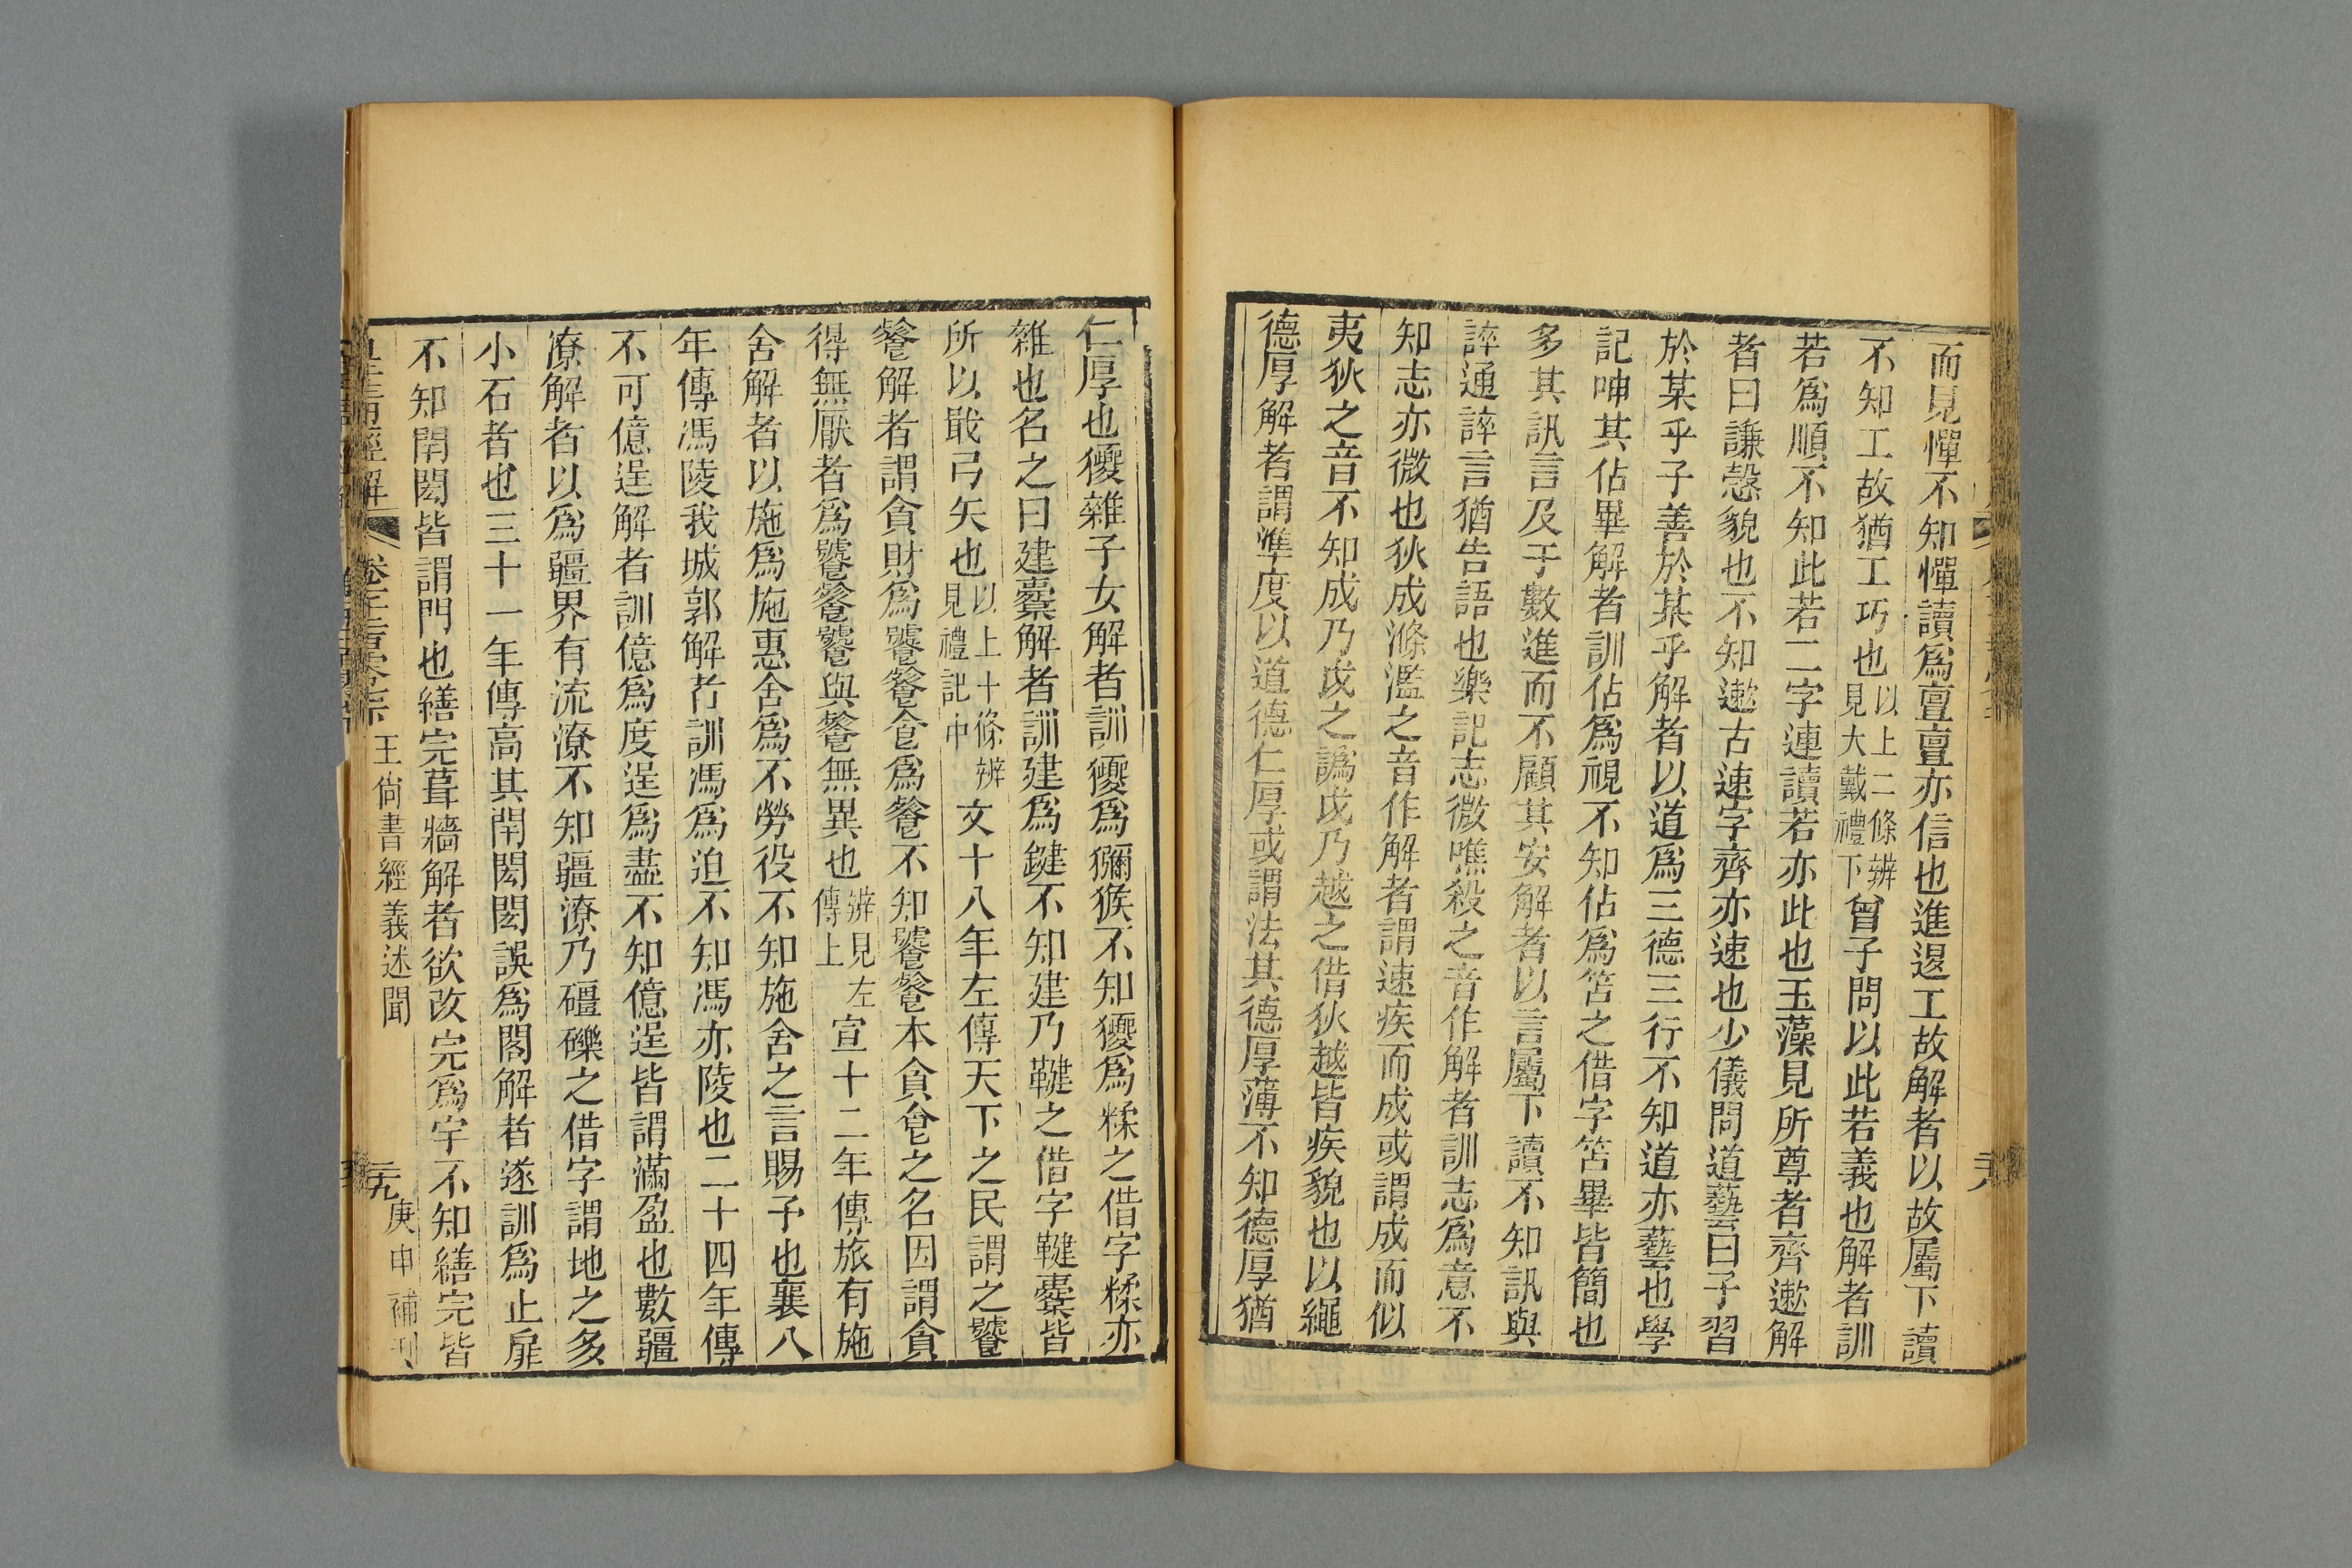 而見憚不知憚讀爲亶亶亦信也進退工故解者以故屬下讀
不知工故猶工巧也以上二條辨見大戴禮下曾子問以此若義也解者訓
若爲順不知此若二字連讀若亦此也玉藻見所尊者齊遬解
者曰謙愨貌也不知遬古速字齊亦速也少儀問道藝曰子習
於某乎子善於某乎解者以道爲三德三行不知道亦藝也學
記呻其佔畢解者訓佔爲視不知佔爲笘之借字笘畢皆簡也
多其訊言及于數進而不顧其安解者以言屬下讀不知訊與
誶通誶言猶告語也樂記志微噍殺之音作解者訓志爲意不
知志亦微也狄成滌濫之音作解者謂速疾而成或謂成而似
夷狄之音不知成乃戉之譌戉乃越之借狄越皆疾貌也以繩
德厚解者謂準度以道德仁厚或謂法其德厚薄不知德厚猶
仁厚也獶雜子女解者訓獶爲獼猴不知獶爲糅之借字糅亦
雜也名之曰建櫜解者訓建爲鍵不知建乃鞬之借字鞬櫜皆
所以戢弓矢也以上十條辨見禮記中文十八年左傳天下之民謂之饕
餮解者謂貪財爲饕貪食爲餮不知饕餮本貪食之名因謂貪
得無厭者爲饕餮饕與餮無異也辨見左傳上宣十二年傳旅有施
舍解者以施爲施惠舍爲不勞役不知施舍之言賜予也襄八
年傳馮陵我城郭解者訓馮爲迫不知馮亦陵也二十四年傳
不可億逞解者訓億爲度逞爲盡不知億逞皆謂滿盈也數疆
潦解者以爲疆界有流潦不知疆潦乃礓礫之借字謂地之多
小石者也三十一年傳高其閈閎閎誤爲閣解者遂訓爲止扉
不知閈閎皆謂門也繕完葺牆解者欲改完爲宇不知繕完皆
皇淸經解 卷千二百零七下 王尙書經義述聞 三九 庚申補刊